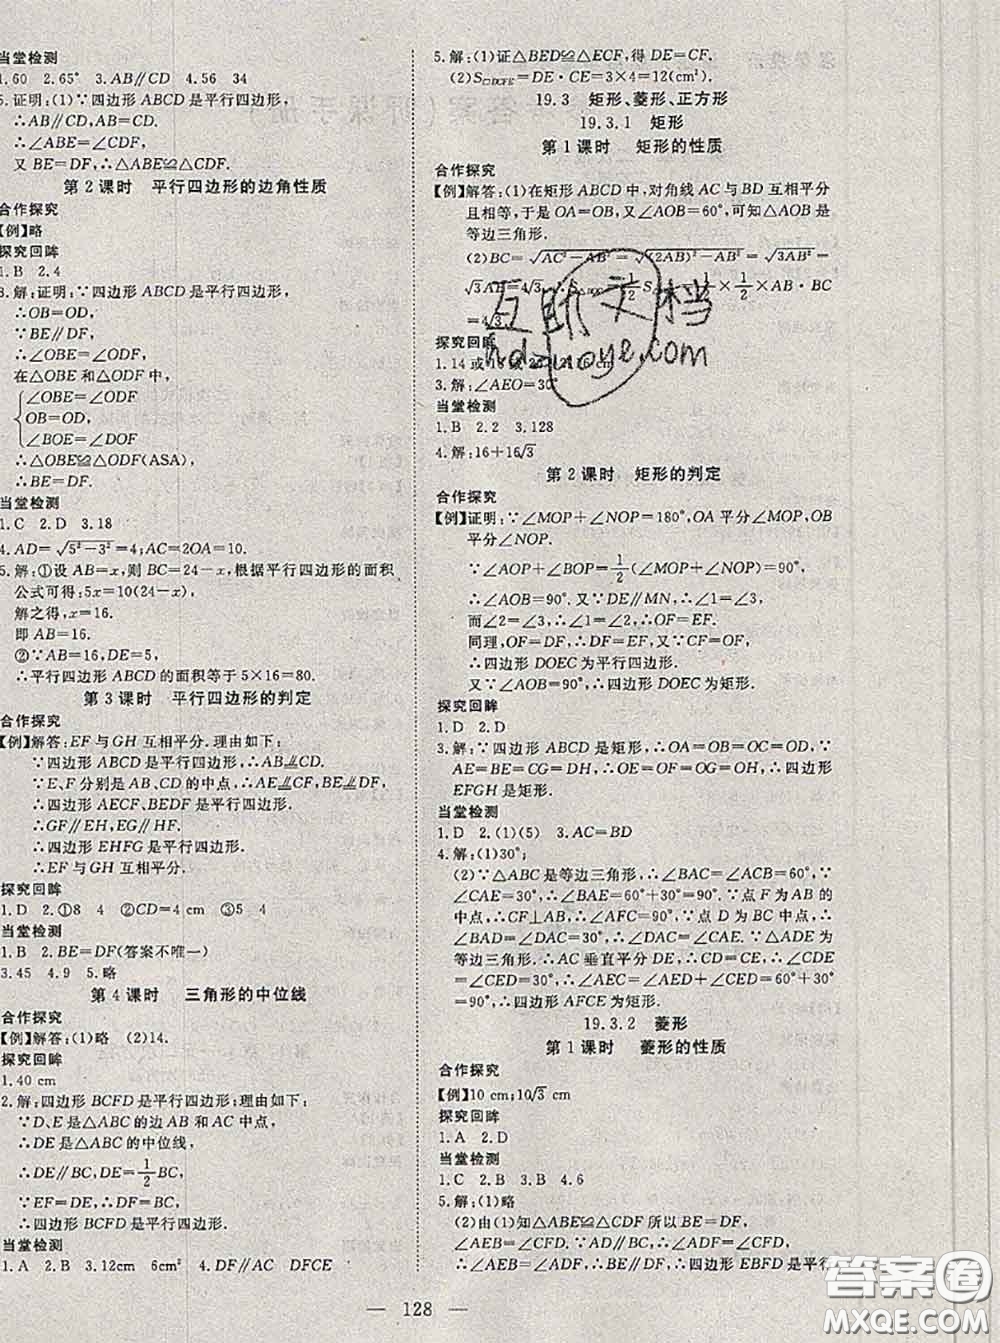 当堂检测
1.60 2.65° 3.AB∥CD 4.56 34
5.证明:(1)∵四边形ABCD是平行四边形,
∴AB∥CD,AB=CD.
∴∠ABE=∠CDF.
又BE=DF,∴△ABE≌△CDF.
第2课时 平行四边形的边角性质
合作探究
【例】略
探究回眸
1.B 2.4
3.解:证明:∵四边形ABCD是平行四边形,
∴OB=OD,
∵BE∥DF,
∴∠OBE=∠ODF.
在△OBE和△ODF中,
∠OBE=∠ODF
OB=OD,
∠BOE=∠DOF
∴△OBE≌△ODF(ASA).
∴BE=DF.
当堂检测
1.C 2.D 3.18
4.AD=√(5²-3²)=4;AC=2OA=10.
5.解:①设AB=x,则BC=24-x,根据平行四边形的面积
公式可得:5x=10(24-x),
解之得,x=16.
即AB=16.
②∵AB=16,DE=5,
∴平行四边形ABCD的面积等于5×16=80.
第3课时 平行四边形的判定
合作探究
【例】解答:EF与GH互相平分.理由如下:
∵四边形ABCD是平行四边形,∴AB⫽CD.
∵E、F分别是AB、CD的中点,∴AE⫽CF,BE⫽DF,
∴四边形AECF、BEDF是平行四边形.
∴GF∥EH,EG∥HF.
∴四边形EHFG是平行四边形.
∴EF与GH互相平分.
探究回眸
1.D 2.①8 4 ②CD=4 cm ③5 4
当堂检测
1.B 2.BE=DF(答案不唯一)
3.45 4.9 5.略
第4课时 三角形的中位线
合作探究
【例】解答:(1)略 (2)14.
探究回眸
1.40 cm
2.解:四边形BCFD是平行四边形;理由如下:
∵D、E是△ABC的中点,
∴DE是△ABC的中位线,
∴DE∥BC,DE=1/2BC,
∵EF=DE,∴DF=BC,
∴四边形BCFD是平行四边形.
当堂检测
1.A 2.B 3.12cm 6cm² 4.DF∥AC DFCE
5.解:(1)证△BED≌△ECF,得DE=CF.
(2)S▱DCFE=DE·CE=3×4=12(cm²).
19.3 矩形、菱形、正方形
19.3.1 矩形
第1课时 矩形的性质
合作探究
【例】解答:(1)在矩形ABCD中,对角线AC与BD互相平分
且相等,于是OA=OB,又∠AOB=60°,可知△AOB是
等边三角形.
(2)BC=√(AC²-AB²)=√((2AB)²-AB²)=√(3AB²)=
√3AB=4√3 1/2 ×1/2×AB·BC
=4√3
互助文档
hdzuoye.com
探究回眸
1.14或16或
3.解:∠AEO=30°
当堂检测
1.B 2.2 3.128
4.解:16+16√3
第2课时 矩形的判定
合作探究
【例】证明:∵∠MOP+∠NOP=180°,OA平分∠MOP,OB
平分∠NOP.
∵∠AOP+∠BOP=1/2(∠MOP+∠NOP)=90°,
∴∠AOB=90°.又∵DE∥MN,∴∠1=∠3,
而∠2=∠3,∴∠1=∠2,∴OF=EF.
同理,OF=DF,∴DF=EF,又CF=OF,
∴四边形DOEC为平行四边形.
又∵∠AOB=90°,∴四边形DOEC为矩形.
探究回眸
1.D 2.D
3.解:∵四边形ABCD是矩形,∴OA=OB=OC=OD,∵
AE=BF=CG=DH,∴OE=OF=OG=OH,∴四边形
EFGH是矩形.
当堂检测
1.D 2.(1)(5) 3.AC=BD
4.解:(1)30°;
(2)∵△ABC是等边三角形,∴∠BAC=∠ACB=60°,∵
∠CAE=30°,∴∠BAE=60°+30°=90°,∵点F为AB的
中点,∴CF⊥AB,∴∠AFC=90°,∵点D为AC的中点,
∠BAC=60°,∴∠ACF=30°=∠CAE.∵△ADE为
等边三角形.∴AC垂直平分DE,∴AE=CE,∴∠CAE
=∠ECD=30°,∴∠AEC=∠AFC=90°=∠EAF=
90°,∴四边形AFCE为矩形.
19.3.2 菱形
第1课时 菱形的性质
合作探究
【例】10 cm;10√3 cm
探究回眸
1.A 2.D
当堂检测
1.C 2.B 3.B 4.6
5.解:(1)略
(2)由(1)知△ABE≌△CDF所以BE=DF,
∠AEB=∠CFD.∵AB=BD,∴DE=BF,
∴∠AEB=∠CFD,∴AE∥CF,∴四边形是平行
128
答案圈
MXQE.COM